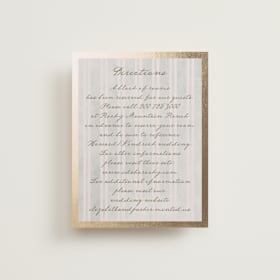 Directions
A block of rooms
has been reserved for our guests.
Please call 200.728.3000
at Rocky Mountain Ranch
in advance to reserve your room
and be sure to reference
Howard/Kindred wedding.
For other information
please visit their site:
For additional information
please visit our
wedding website